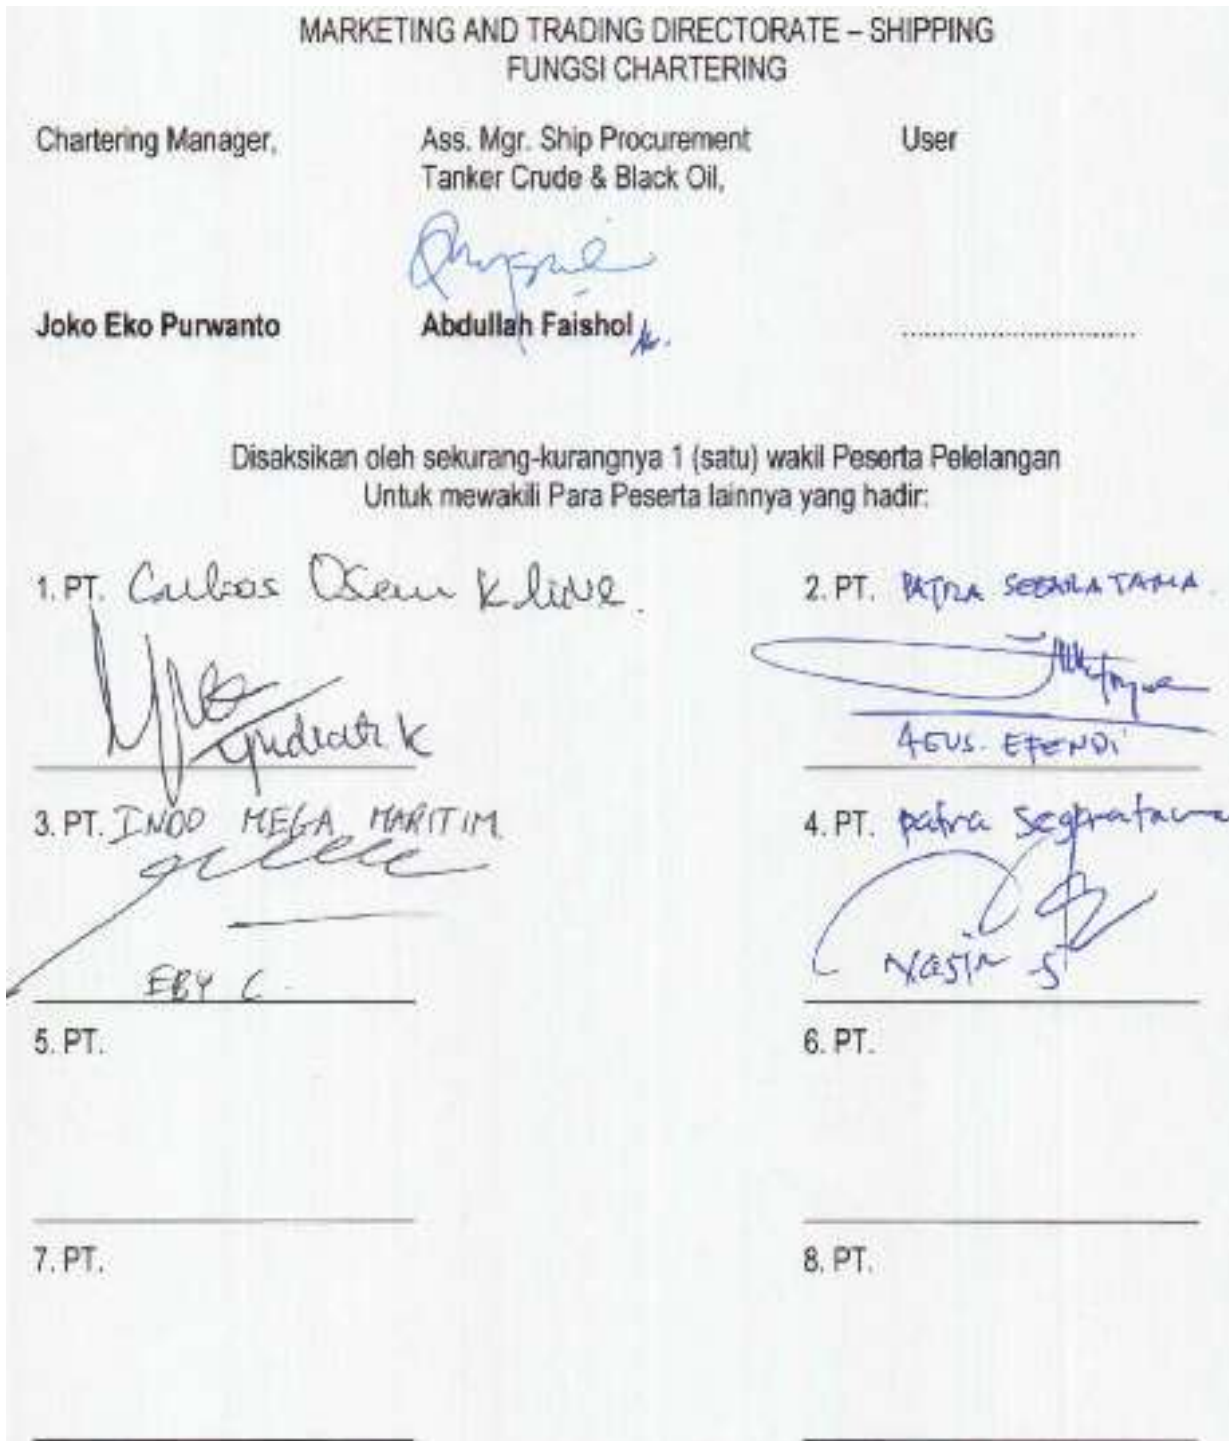 MARKETING AND TRADING DIRECTORATE – SHIPPING
FUNGSI CHARTERING
Chartering Manager,
Ass. Mgr. Ship Procurement
Tanker Crude & Black Oil,
User
Joko Eko Purwanto
Abdullah Faishol
..............................
Disaksikan oleh sekurang-kurangnya 1 (satu) wakil Peserta Pelelangan
Untuk mewakili Para Peserta lainnya yang hadir:
1. PT. K Line.
2. PT. PATRA SEGARATAMA.
AGUS. EFENDI
3. PT. INDO MEGA MARITIM.
EBY C.
4. PT. patra segaratama
NASIR S
5. PT.
6. PT.
7. PT.
8. PT.